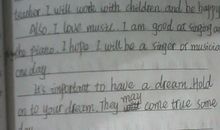 teacher I will work with children and be happy
Also I love music. I am good at singing and
the piano. I hope I will be a singer or musicia
one day.
It's important to have a dream. Hold
on to your dream. They may come true some
day